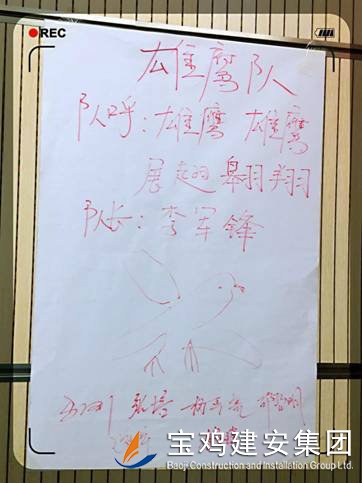 REC
雄鹰队
队呼：雄鹰 雄鹰
展翅翱翔
队长：李军锋
张培
宝鸡建安集团
Baoji Construction and Installation Group Ltd.